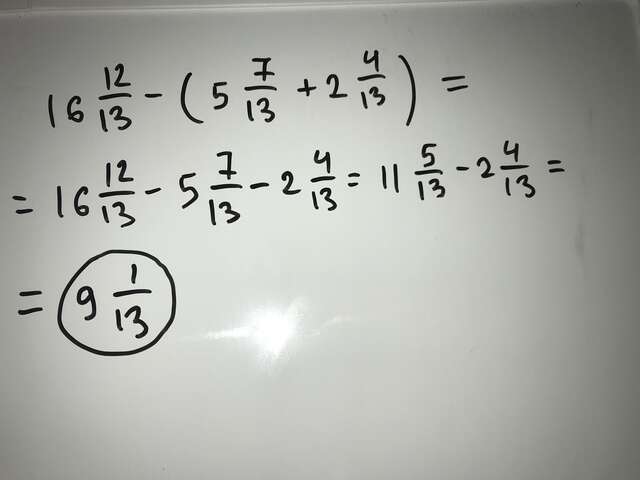 16 12/13 - (5 7/13 + 2 4/13) =
= 16 12/13 - 5 7/13 - 2 4/13 = 11 5/13 - 2 4/13 =
= 9 1/13